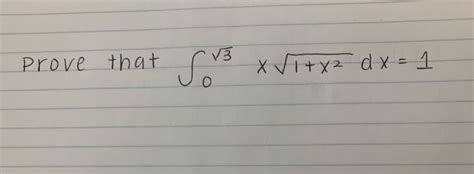 Prove that ∫₀^√3 x√(1+x²) dx = 1